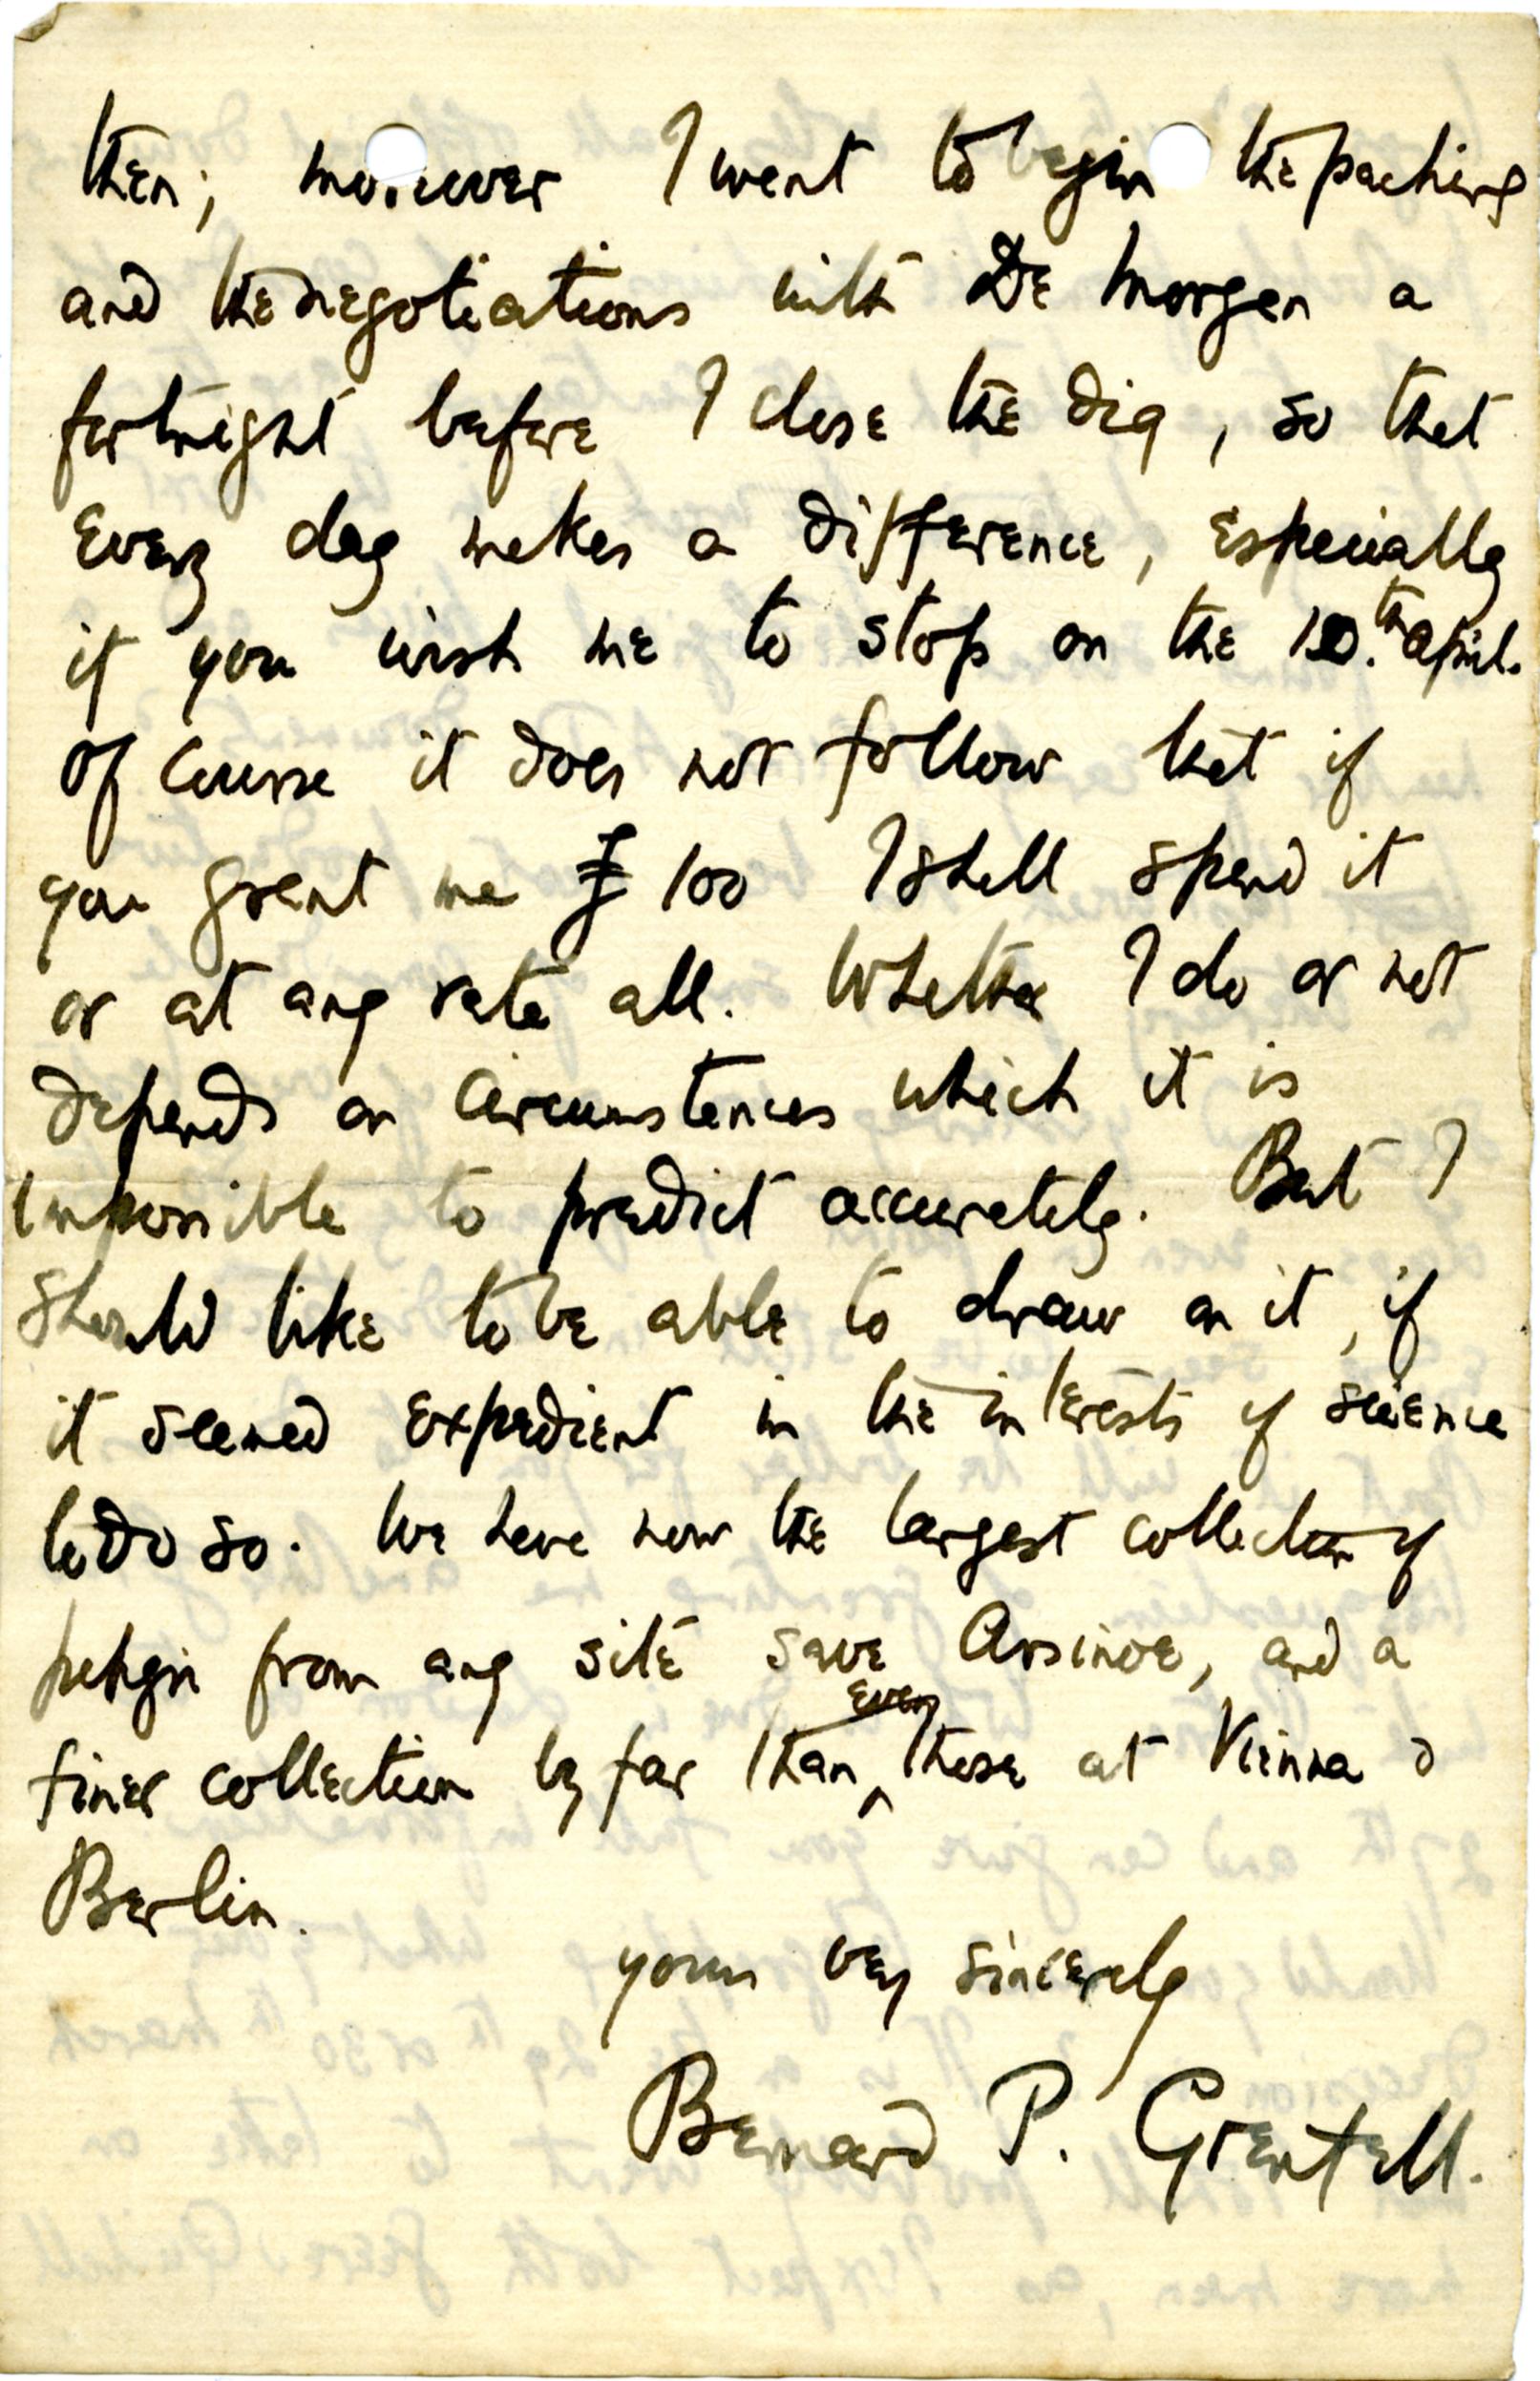 then; moreover I want to begin the packing
and the negotiations with De Morgan a
fortnight before I close the dig, so that
every day makes a difference, especially
if you wish me to stop on the 10.th April.
Of course it does not follow that if
you grant me £ 100 I shall spend it
or at any rate all. Whether I do or not
depends on circumstances which it is
impossible to predict accurately. But I
should like to be able to draw on it, if
it seemed expedient in the interests of science
to do so. We have now the largest collection of
papyri from any site save Arsinoe, and a
finer collection by far than even those at Vienna &
Berlin.
yours very sincerely
Bernard P. Grenfell.